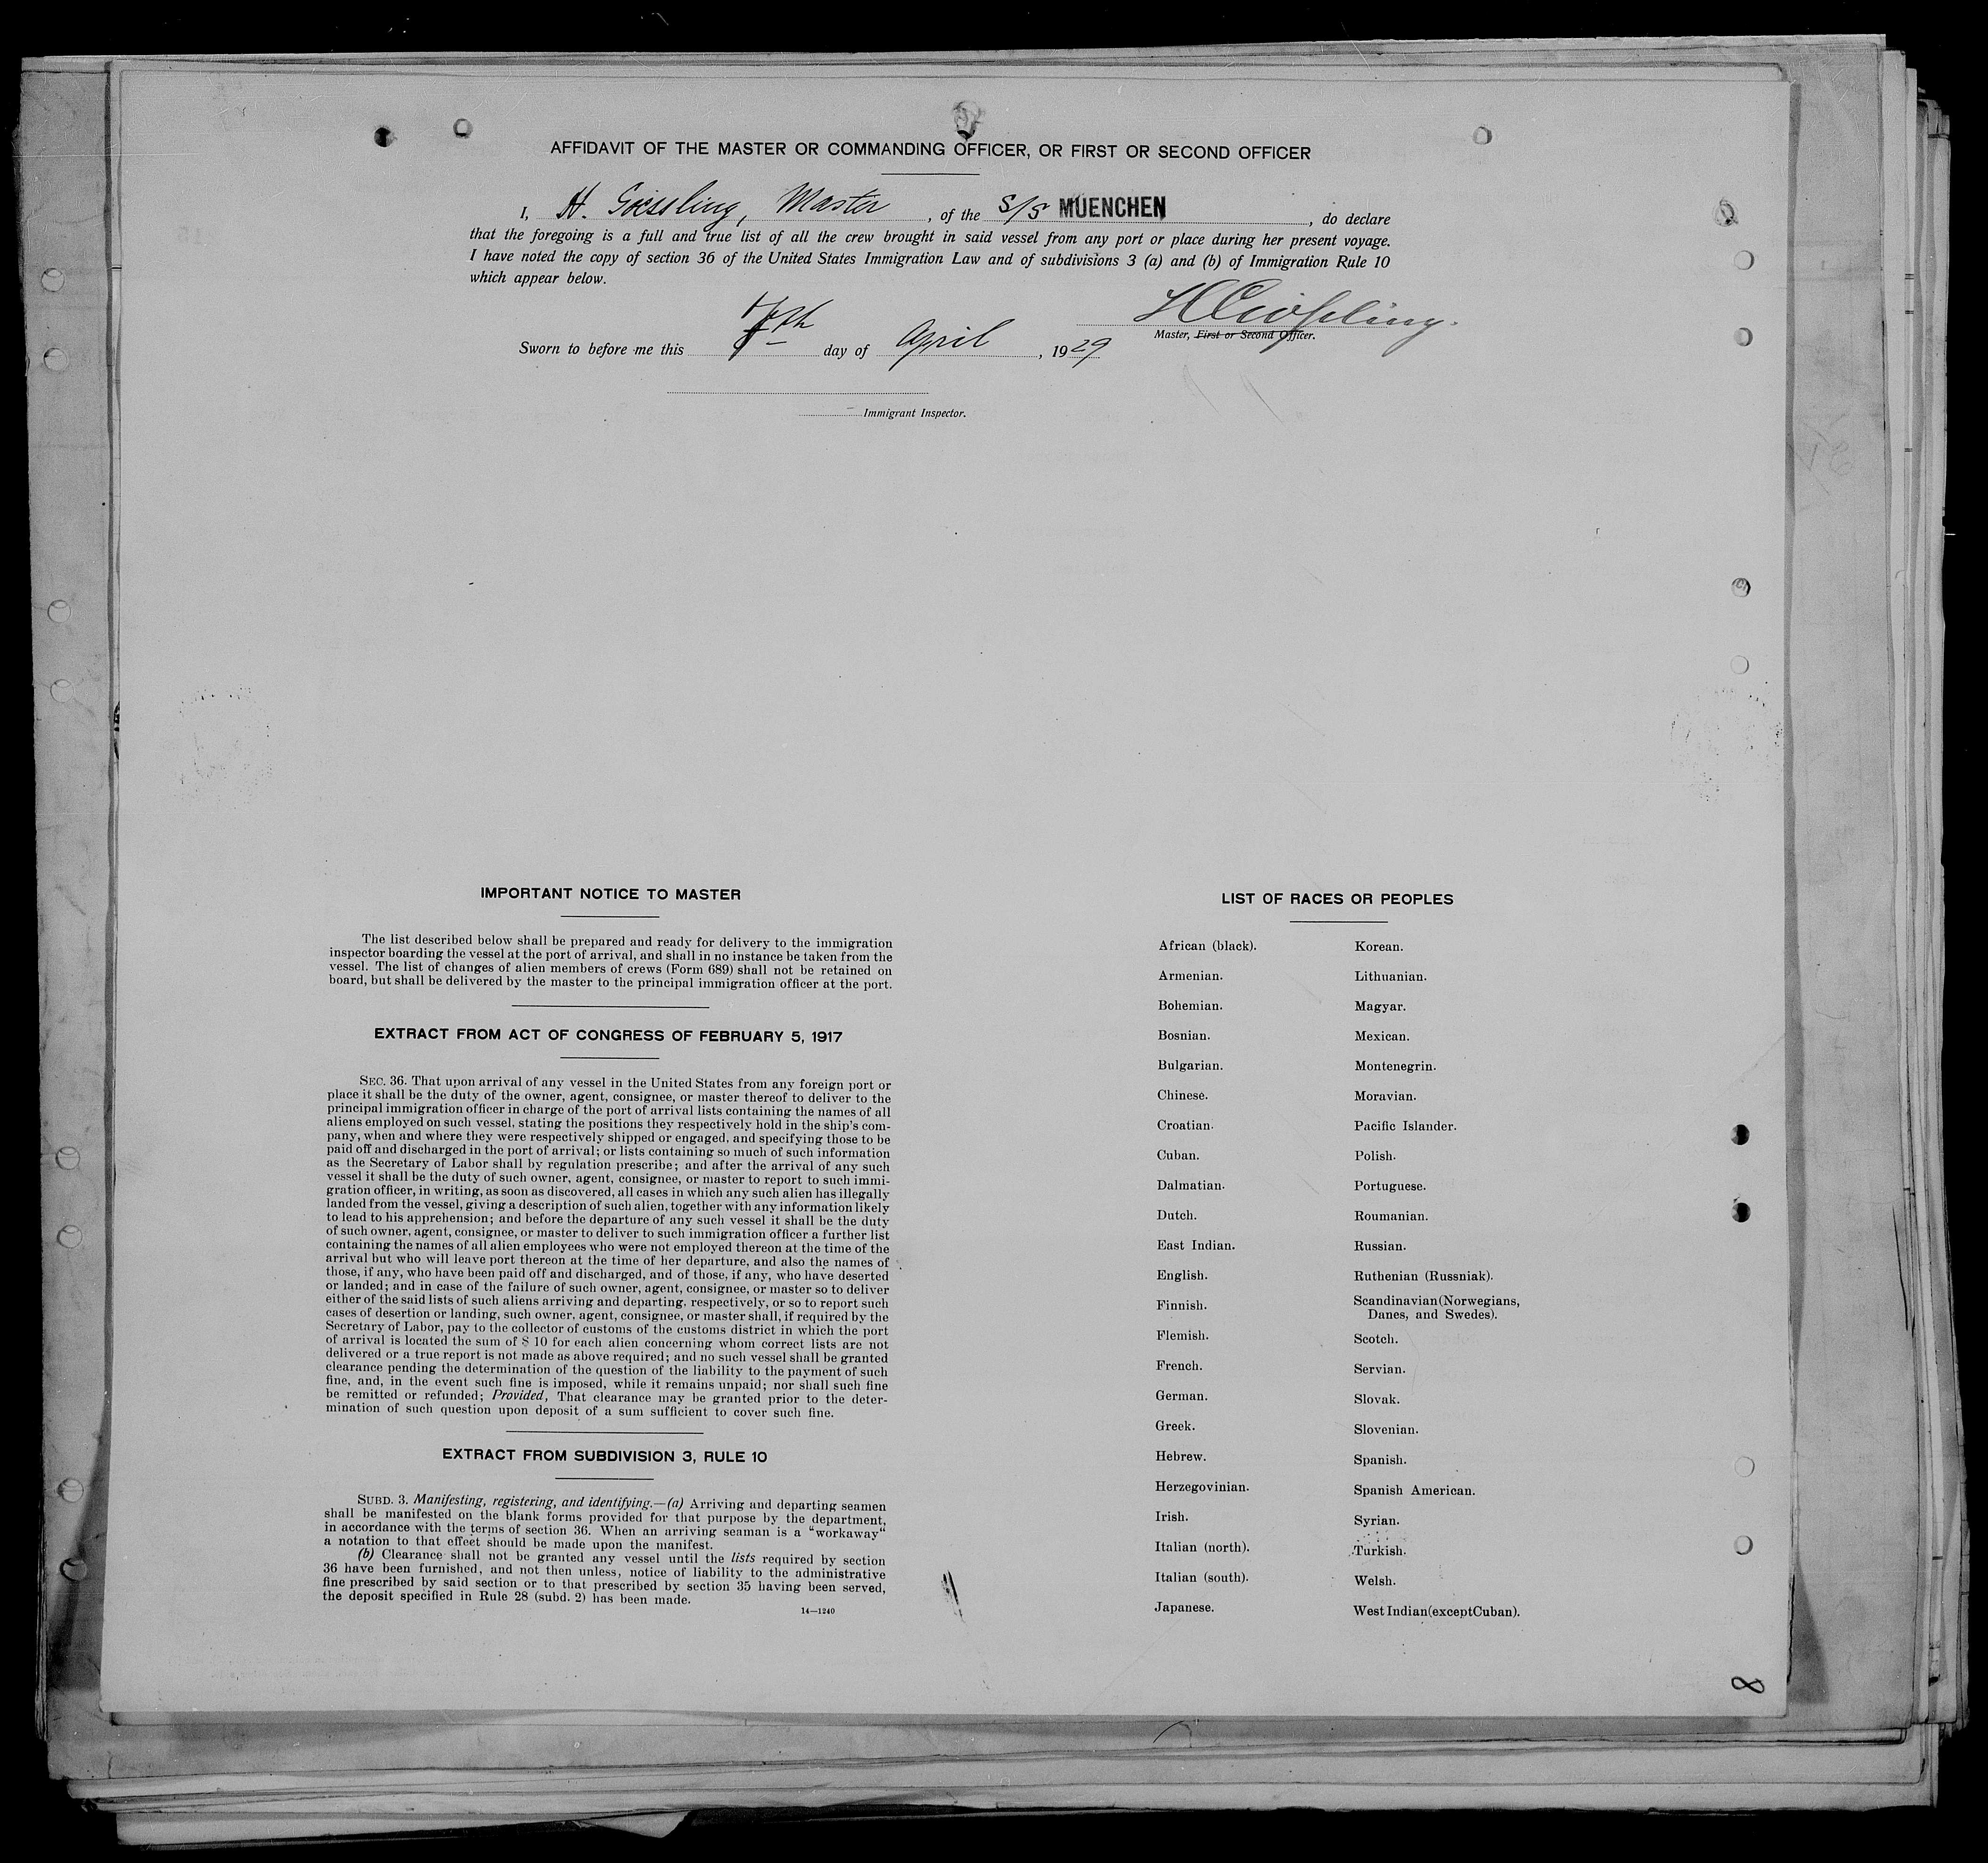 AFFIDAVIT OF THE MASTER OR COMMANDING OFFICER, OR FIRST OR SECOND OFFICER
I, H. Goessling, Master, of the S/S MUENCHEN, do declare
that the foregoing is a full and true list of all the crew brought in said vessel from any port or place during her present voyage.
I have noted the copy of section 36 of the United States Immigration Law and of subdivisions 3 (a) and (b) of Immigration Rule 10
which appear below.
HGoessling.
Master, First or Second Officer.
Sworn to before me this day of April, 1929
Immigrant Inspector.
IMPORTANT NOTICE TO MASTER
The list described below shall be prepared and ready for delivery to the immigration
inspector boarding the vessel at the port of arrival, and shall in no instance be taken from the
vessel. The list of changes of alien members of crews (Form 689) shall not be retained on
board, but shall be delivered by the master to the principal immigration officer at the port.
EXTRACT FROM ACT OF CONGRESS OF FEBRUARY 5, 1917
SEC. 36. That upon arrival of any vessel in the United States from any foreign port or
place it shall be the duty of the owner, agent, consignee, or master thereof to deliver to the
principal immigration officer in charge of the port of arrival lists containing the names of all
aliens employed on such vessel, stating the positions they respectively hold in the ship's com-
pany, when and where they were respectively shipped or engaged, and specifying those to be
paid off and discharged in the port of arrival; or lists containing so much of such information
as the Secretary of Labor shall by regulation prescribe; and after the arrival of any such
vessel it shall be the duty of such owner, agent, consignee, or master to report to such immi-
gration officer, in writing, as soon as discovered, all cases in which any such alien has illegally
landed from the vessel, giving a description of such alien, together with any information likely
to lead to his apprehension; and before the departure of any such vessel it shall be the duty
of such owner, agent, consignee, or master to deliver to such immigration officer a further list
containing the names of all alien employees who were not employed thereon at the time of the
arrival but who will leave port thereon at the time of her departure, and also the names of
those, if any, who have been paid off and discharged, and of those, if any, who have deserted
or landed; and in case of the failure of such owner, agent, consignee, or master so to deliver
either of the said lists of such aliens arriving and departing, respectively, or so to report such
cases of desertion or landing, such owner, agent, consignee, or master shall, if required by the
Secretary of Labor, pay to the collector of customs of the customs district in which the port
of arrival is located the sum of $ 10 for each alien concerning whom correct lists are not
delivered or a true report is not made as above required; and no such vessel shall be granted
clearance pending the determination of the question of the liability to the payment of such
fine, and, in the event such fine is imposed, while it remains unpaid; nor shall such fine
be remitted or refunded; Provided, That clearance may be granted prior to the deter-
mination of such question upon deposit of a sum sufficient to cover such fine.
EXTRACT FROM SUBDIVISION 3, RULE 10
SUBD. 3. Manifesting, registering, and identifying.—(a) Arriving and departing seamen
shall be manifested on the blank forms provided for that purpose by the department,
in accordance with the terms of section 36. When an arriving seaman is a "workaway"
a notation to that effect should be made upon the manifest.
(b) Clearance shall not be granted any vessel until the lists required by section
36 have been furnished, and not then unless, notice of liability to the administrative
fine prescribed by said section or to that prescribed by section 35 having been served,
the deposit specified in Rule 28 (subd. 2) has been made.
14—1240
LIST OF RACES OR PEOPLES
African (black).
Armenian.
Bohemian.
Bosnian.
Bulgarian.
Chinese.
Croatian.
Cuban.
Dalmatian.
Dutch.
East Indian.
English.
Finnish.
Flemish.
French.
German.
Greek.
Hebrew.
Herzegovinian.
Irish.
Italian (north).
Italian (south).
Japanese.
Korean.
Lithuanian.
Magyar.
Mexican.
Montenegrin.
Moravian.
Pacific Islander.
Polish.
Portuguese.
Roumanian.
Russian.
Ruthenian (Russniak).
Scandinavian (Norwegians,
Danes, and Swedes).
Scotch.
Servian.
Slovak.
Slovenian.
Spanish.
Spanish American.
Syrian.
Turkish.
Welsh.
West Indian (except Cuban).
8